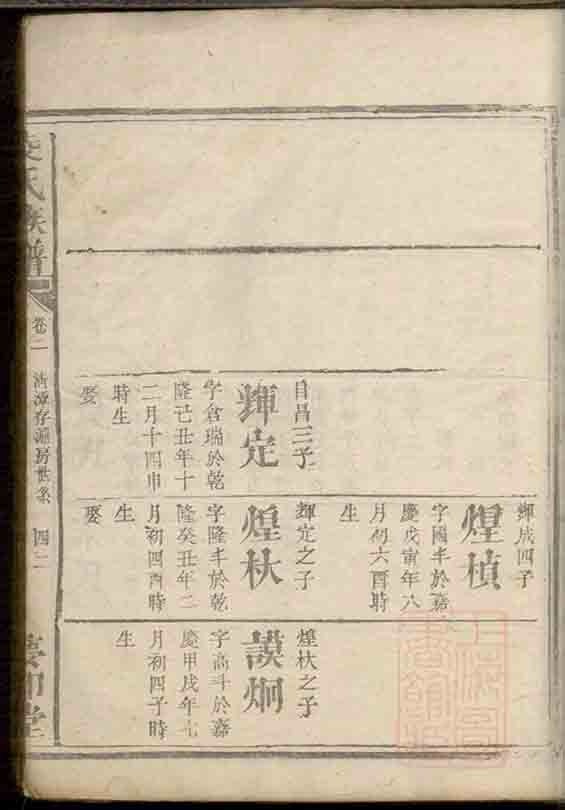 輝成四子
煌楨
字國丰於嘉
慶戊寅年八
月初六酉時
生
自昌三子
輝定
字倉瑞於乾
隆己丑年十
二月十四申
時生
娶
輝定之子
煌杕
字隆丰於乾
隆癸丑年二
月初四酉時
生
娶
煌杕之子
謨炯
字高斗於嘉
慶甲戌年七
月初四子時
生
氏族譜
卷二
房世系
四二
堂